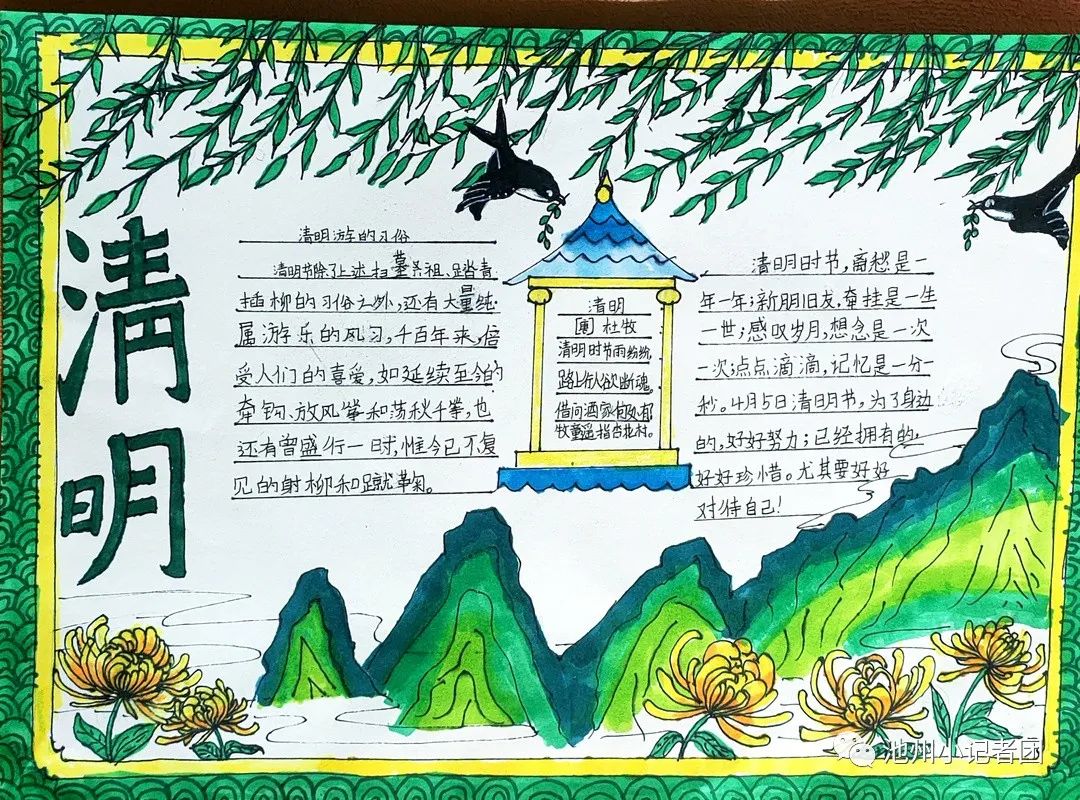 清明
清明游的习俗
清明节除了上述扫墓祭祖、踏青
插柳的习俗之外，还有大量纯
属游乐的风习，千百年来，倍
受人们的喜爱，如延续至今的
牵钩、放风筝和荡秋千拳，也
还有曾盛行一时，惟今已不复
见的射柳和蹴鞠。
清明
[唐] 杜牧
清明时节雨纷纷，
路上行人欲断魂。
借问酒家何处有
牧童遥指杏花村。
清明时节，离愁是一
年一年；新朋旧友，牵挂是一生
一世；感叹岁月，想念是一次
一次；点点滴滴，记忆是一分
秒。4月5日清明节，为了身边
的，好好努力；已经拥有的，
好好珍惜。尤其要好好
对待自己！
池州小记者团